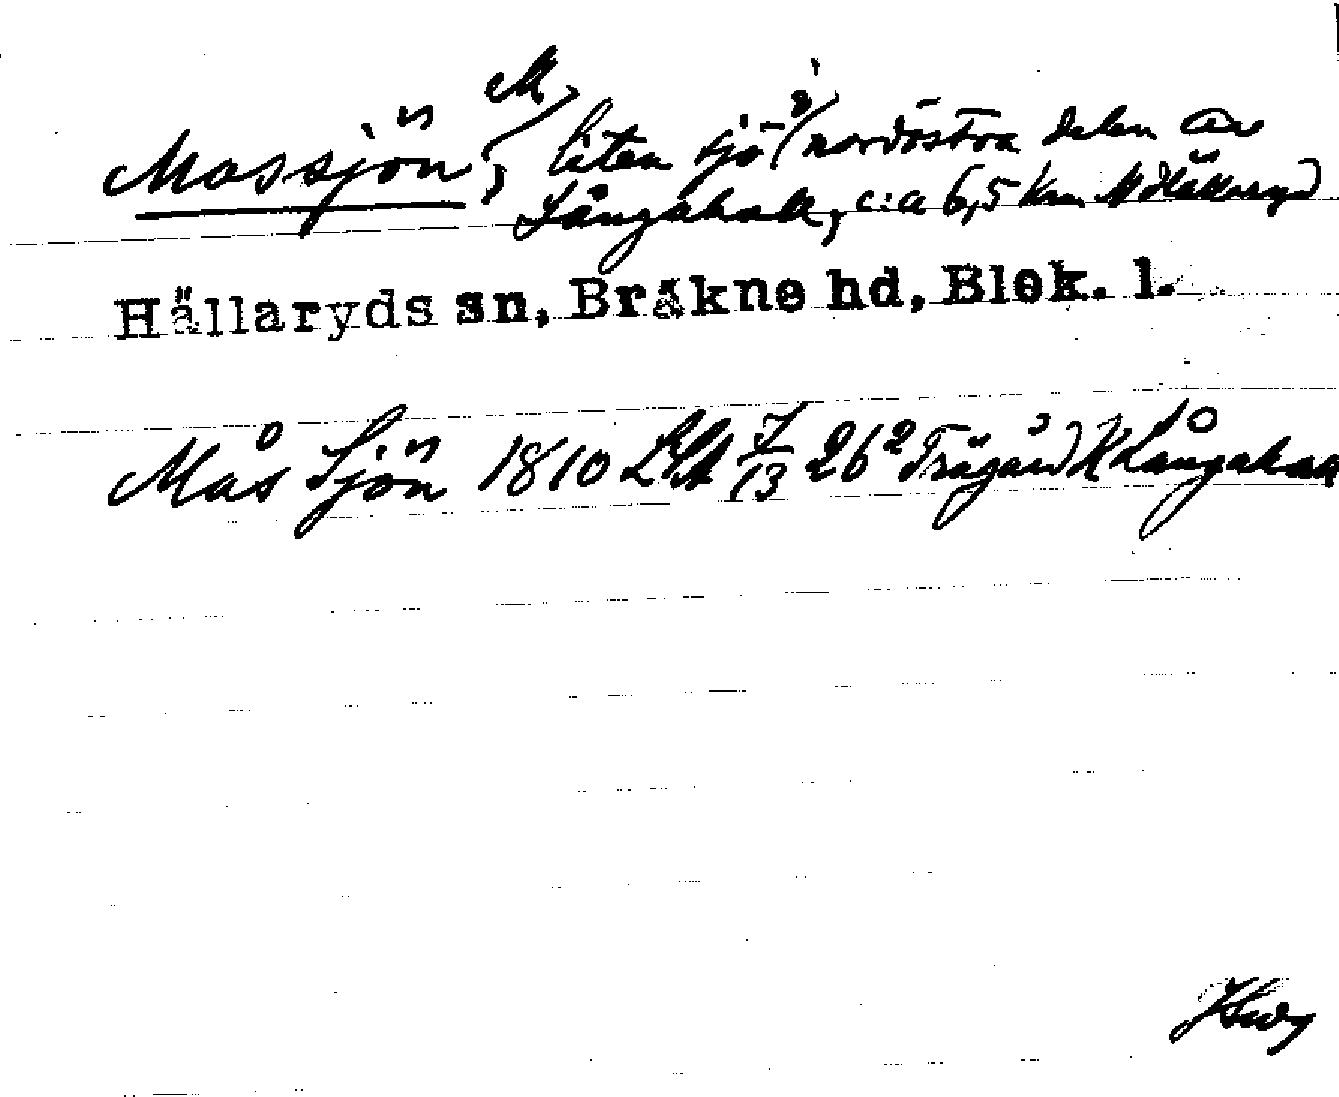 Massjön, M, liten sjö i nordöstra delen av
Långahak, c:a 6,5 km N Hällaryd
Hällaryds sn, Bräkne hd, Blek. l.
Mås Sjön 1810 LSA 7/13 26² Trägård K Långahak